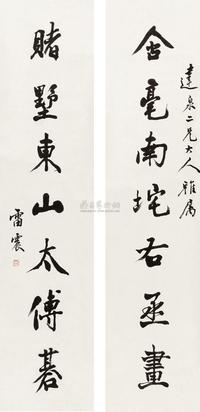 達泉二兄大人雅屬
含毫南垞右丞畫
賭墅東山太傅碁
雷震